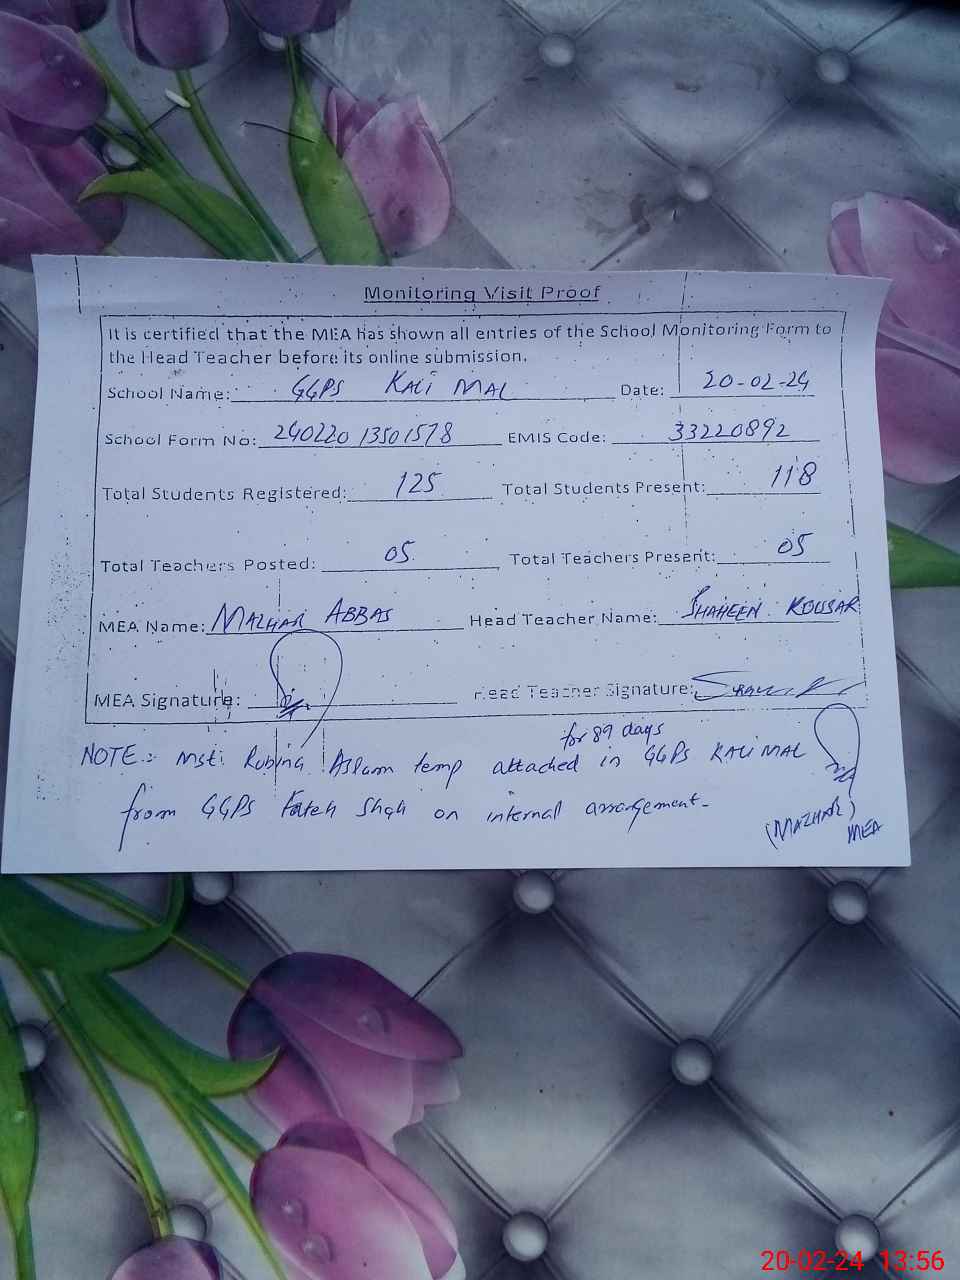 Monitoring Visit Proof
It is certified that the MEA has shown all entries of the School Monitoring Form to
the Head Teacher before its online submission.
School Name: GGPS KALI MAL Date: 20-02-24
School Form No: 240220 13501578 EMIS Code: 33220892
Total Students Registered: 125 Total Students Present: 118
Total Teachers Posted: 05 Total Teachers Present: 05
MEA Name: MAZHAR ABBAS Head Teacher Name: SHAHEEN KOUSAR
MEA Signature: Head Teacher Signature:
for 89 days
NOTE:- Mst: Rubina Asslam temp attached in GGPS KALI MAL
from GGPS Fateh Shah on internal arrangement-
(MAZHAR)
MEA
20-02-24 13:56